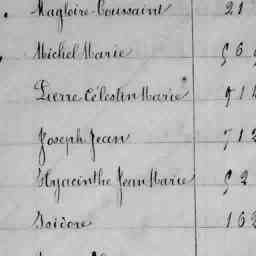 Magloire Toussaint 21
Michel Marie 56
Pierre Célestin Marie 91
Joseph Jean 712
Hyacinthe Jean Marie 52
Isidore 162